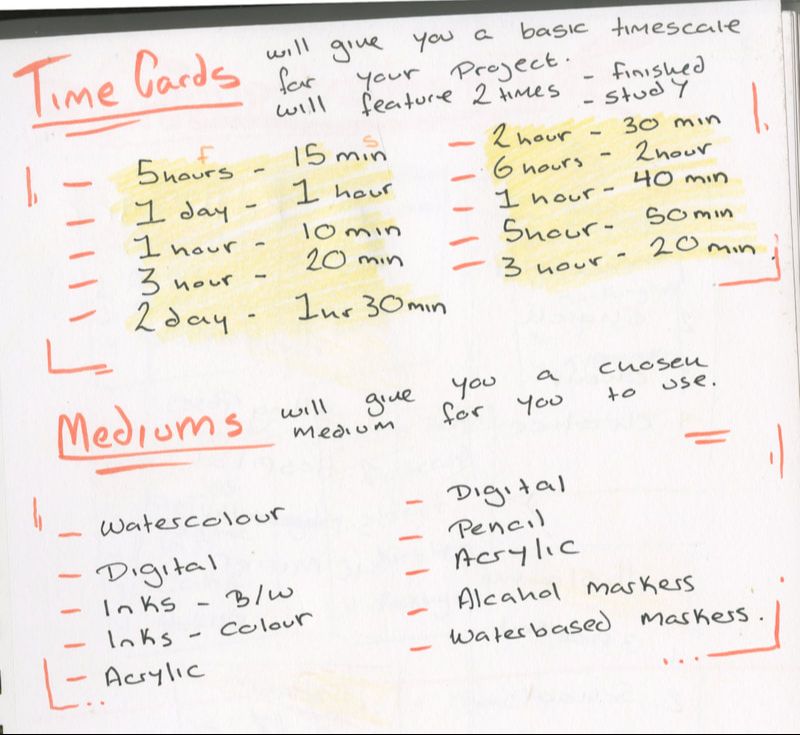 Time Cards will give you a basic timescale
for your Project.
will feature 2 times - finished
- study
f s
- 5hours - 15 min
- 1 day - 1 hour
- 1 hour - 10 min
- 3 hour - 20 min
- 2 day - 1hr 30min
- 2 hour - 30 min
- 6 hours - 2hour
- 1 hour - 40 min
- 5hour - 50min
- 3 hour - 20 min.
Mediums will give you a chosen
medium for you to use.
- Watercolour
- Digital
- Inks - B/W
- Inks - Colour
- Acrylic
- Digital
- Pencil
- Acrylic
- Alcahol markers
- Waterbased markers.